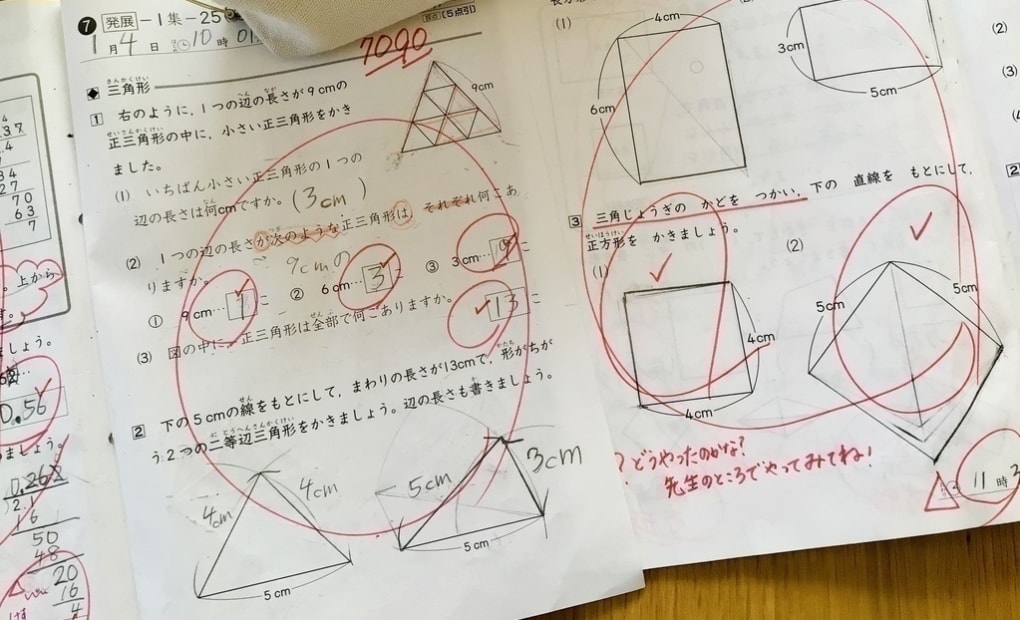 ❼ 発展 −1集−25
1月4日 10時
【5点引】
7090
◆三角形
さんかくけい
1 右のように，1つの辺の長さが9cmの
正三角形の中に，小さい正三角形をかき
ました。
9cm
(1) いちばん小さい正三角形の1つの
辺の長さは何cmですか。(3cm)
(2) 1つの辺の長さが次のような正三角形は，それぞれ何こあ
りますか。
9cmの
① 9cm…1こ ② 6cm…3こ ③ 3cm…
(3) 図の中に，正三角形は全部で何こありますか。 13こ
2 下の5cmの線をもとにして，まわりの長さが13cmで，形がちが
う2つの二等辺三角形をかきましょう。辺の長さも書きましょう。
4cm
4cm
5cm
5cm
3cm
5cm
(1)
4cm
6cm
3cm
5cm
3 三角じょうぎの かどを つかい，下の 直線を もとにして，
正方形を かきましょう。
せいほうけい
(1)
(2)
4cm
4cm
5cm
5cm
? どうやったのかな?
先生のところでやってみてね!
11時
(2)
(3)
(4
2
37
.4
34
27
70
63
7
。上から
しょう。
0.56
ましょう。
0.262
2.1
16
50
48
20
16
4